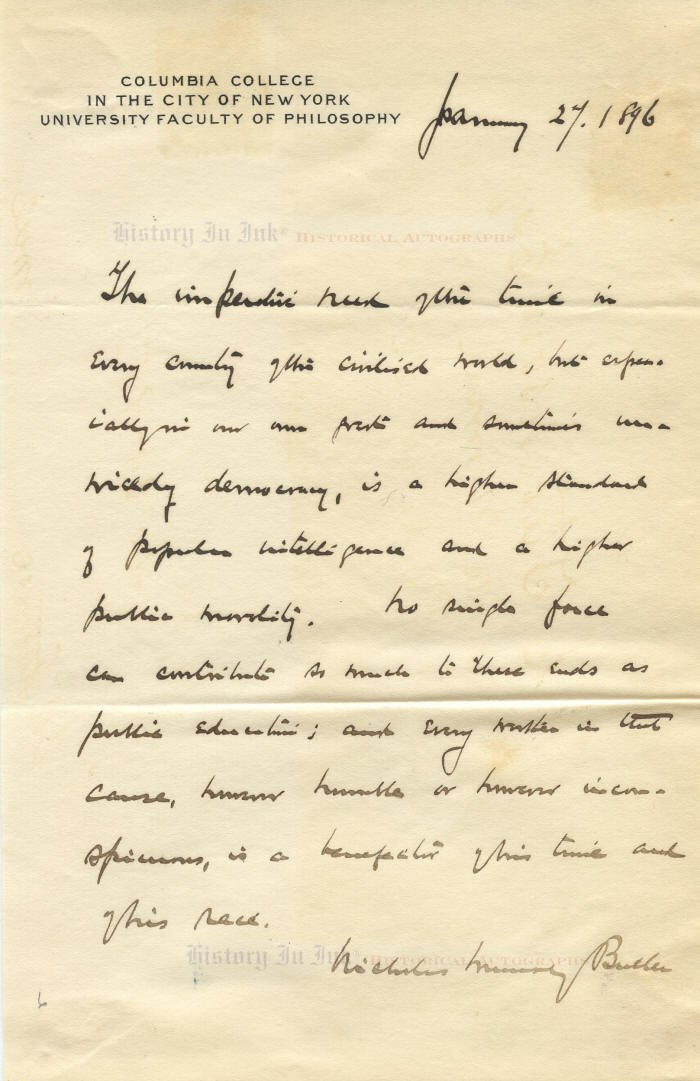 COLUMBIA COLLEGE
IN THE CITY OF NEW YORK
UNIVERSITY FACULTY OF PHILOSOPHY
January 27. 1896
History In Ink® HISTORICAL AUTOGRAPHS
The imperative need of the time in
every country of the civilized world, but espec-
ially in our own great and sometimes un-
wieldy democracy, is a higher standard
of popular intelligence and a higher
public morality. No single force
can contribute so much to these ends as
public education; and every worker in that
cause, however humble or however incon-
spicuous, is a benefactor of his time and
of his race.
History In Ink® HISTORICAL AUTOGRAPHS
Nicholas Murray Butler